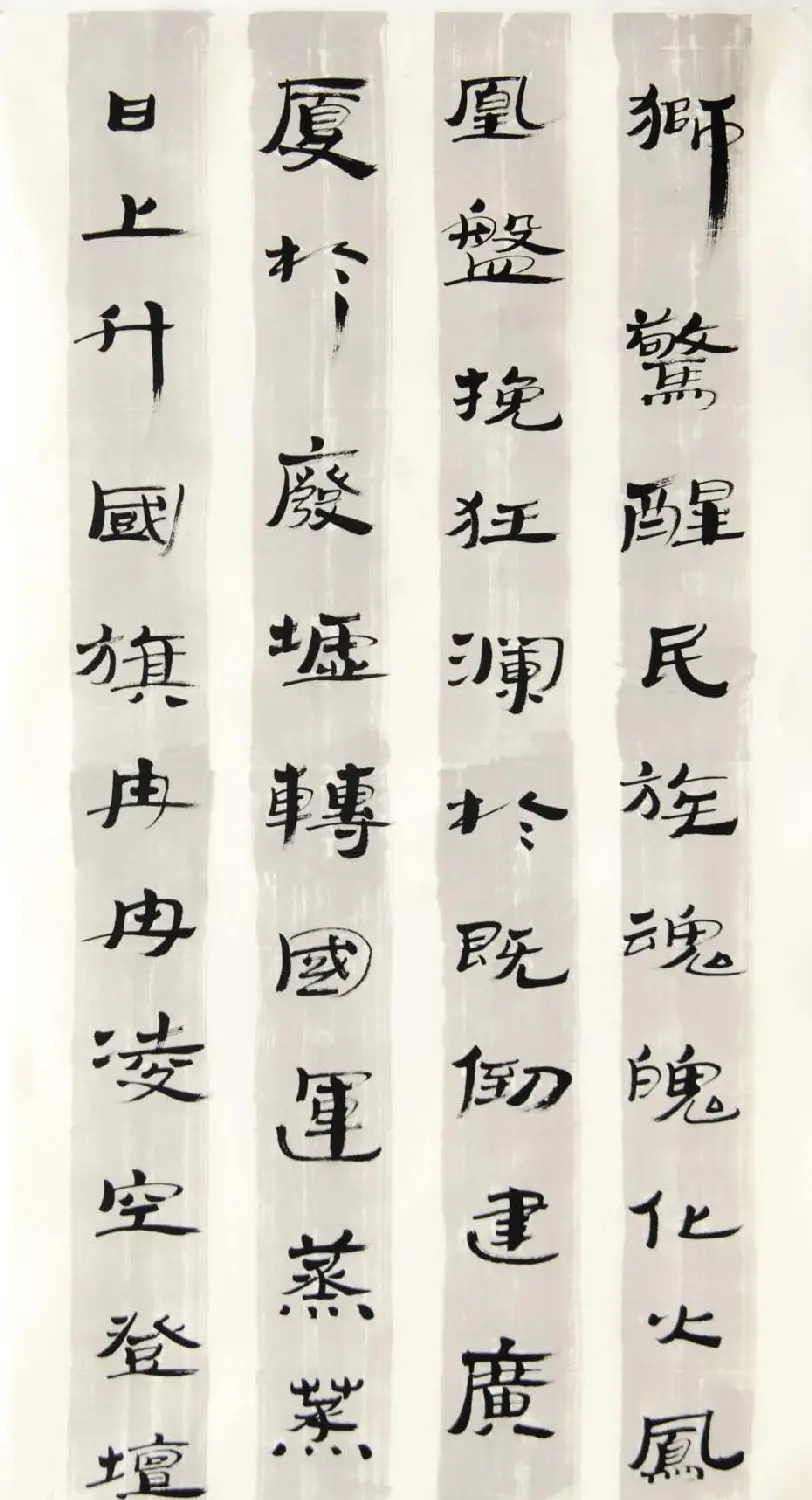 獅驚醒民族魂魄化火鳳
凰盤挽狂瀾於既倒建廣
厦於廢墟轉國運蒸蒸
日上升國旗冉冉凌空登壇